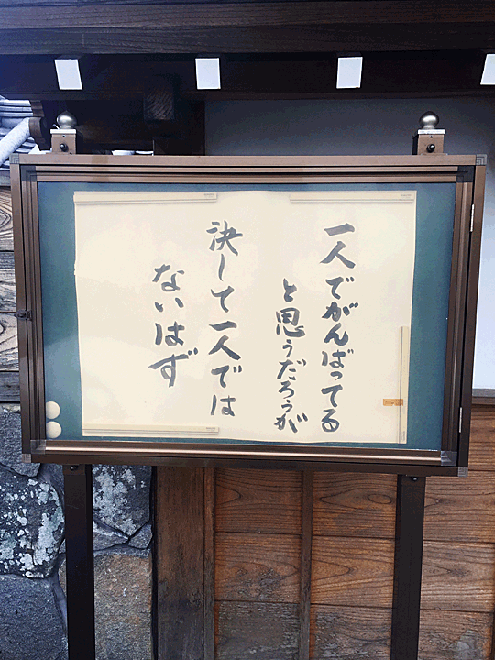 一人でがんばってる
と思うだろうが
決して一人では
ないはず